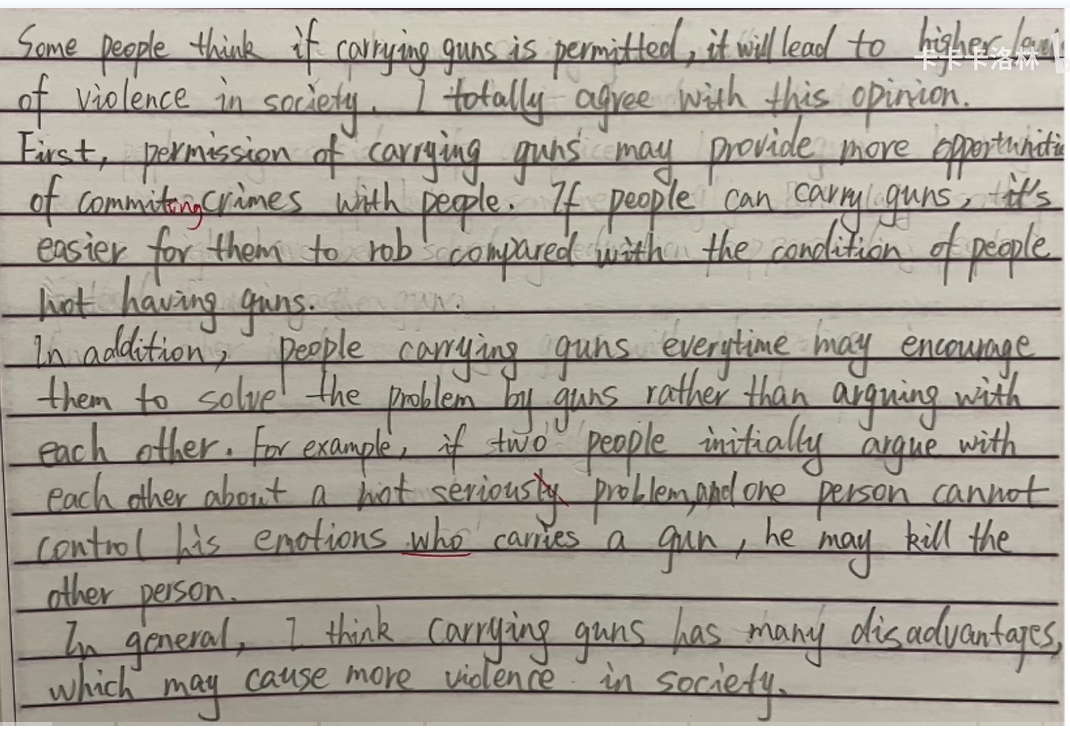 Some people think if carrying guns is permitted, it will lead to higher
卡卡卡洛林
of violence in society. I totally agree with this opinion.
First, permission of carrying guns may provide more opportuniti
of commiting crimes with people. If people can carry guns, it's
easier for them to rob compared with the condition of people
not having guns.
In addition, people carrying guns everytime may encourage
them to solve the problem by guns rather than arguing with
each other. For example, if two people initially argue with
each other about a not seriously problem, and one person cannot
control his emotions who carries a gun, he may kill the
other person.
In general, I think carrying guns has many disadvantages,
which may cause more violence in society.